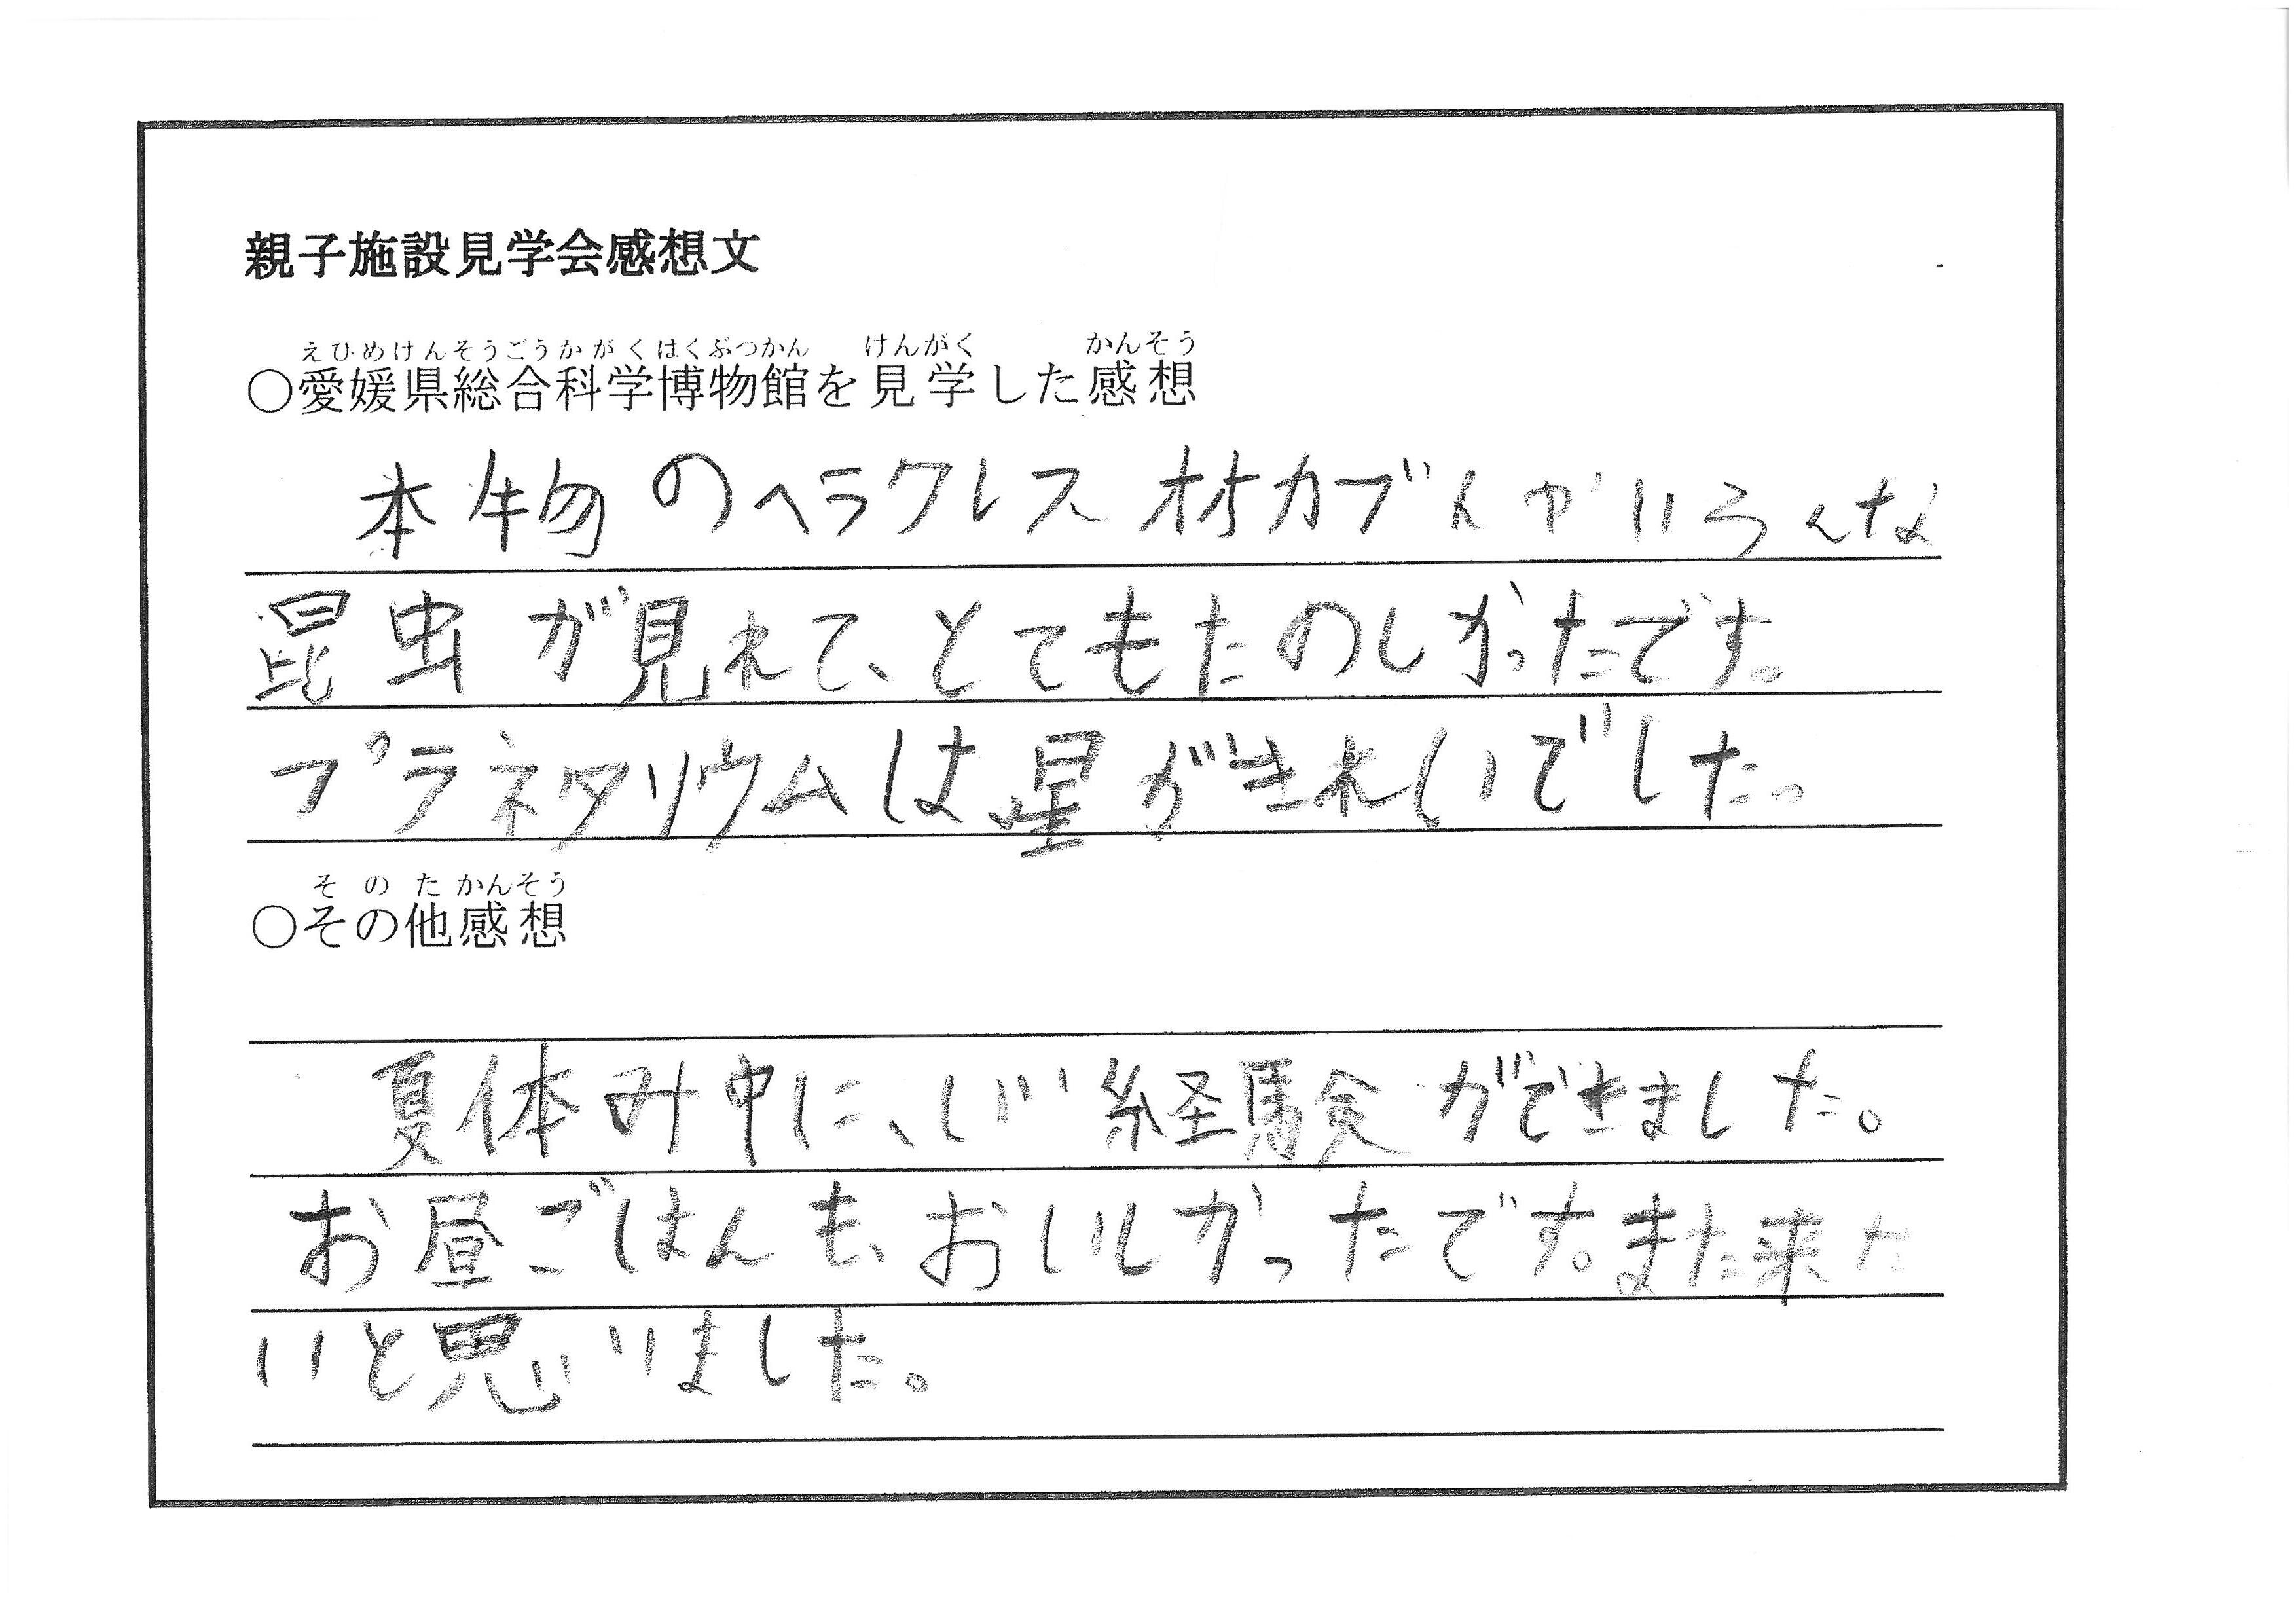 親子施設見学会感想文
えひめけんそうごうかがくはくぶつかん けんがく かんそう
○愛媛県総合科学博物館を見学した感想
本物のヘラクレスオオカブトやいろんな
昆虫が見れて、とてもたのしかったです。
プラネタリウムは、星がきれいでした。
そのたかんそう
○その他感想
夏休み中に、いい経験ができました。
お昼ごはんも、おいしかったです。また来た
いと思いました。